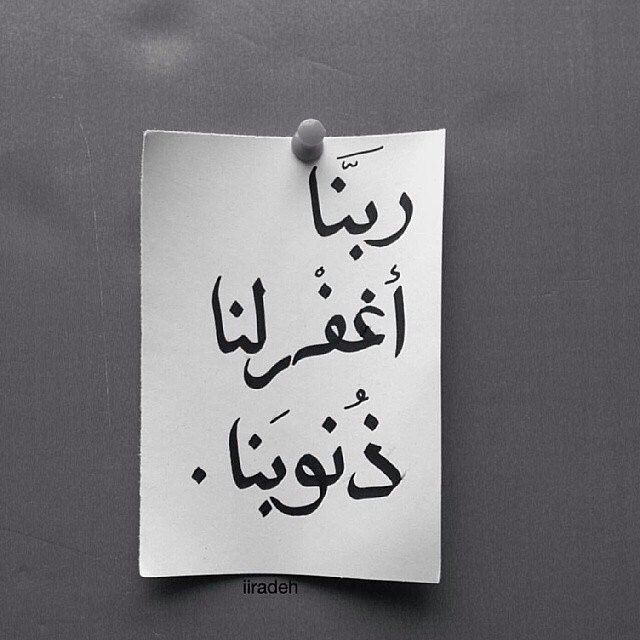 ربَّنا
أغفْرلنا
ذُنوبَنا .
iiradeh